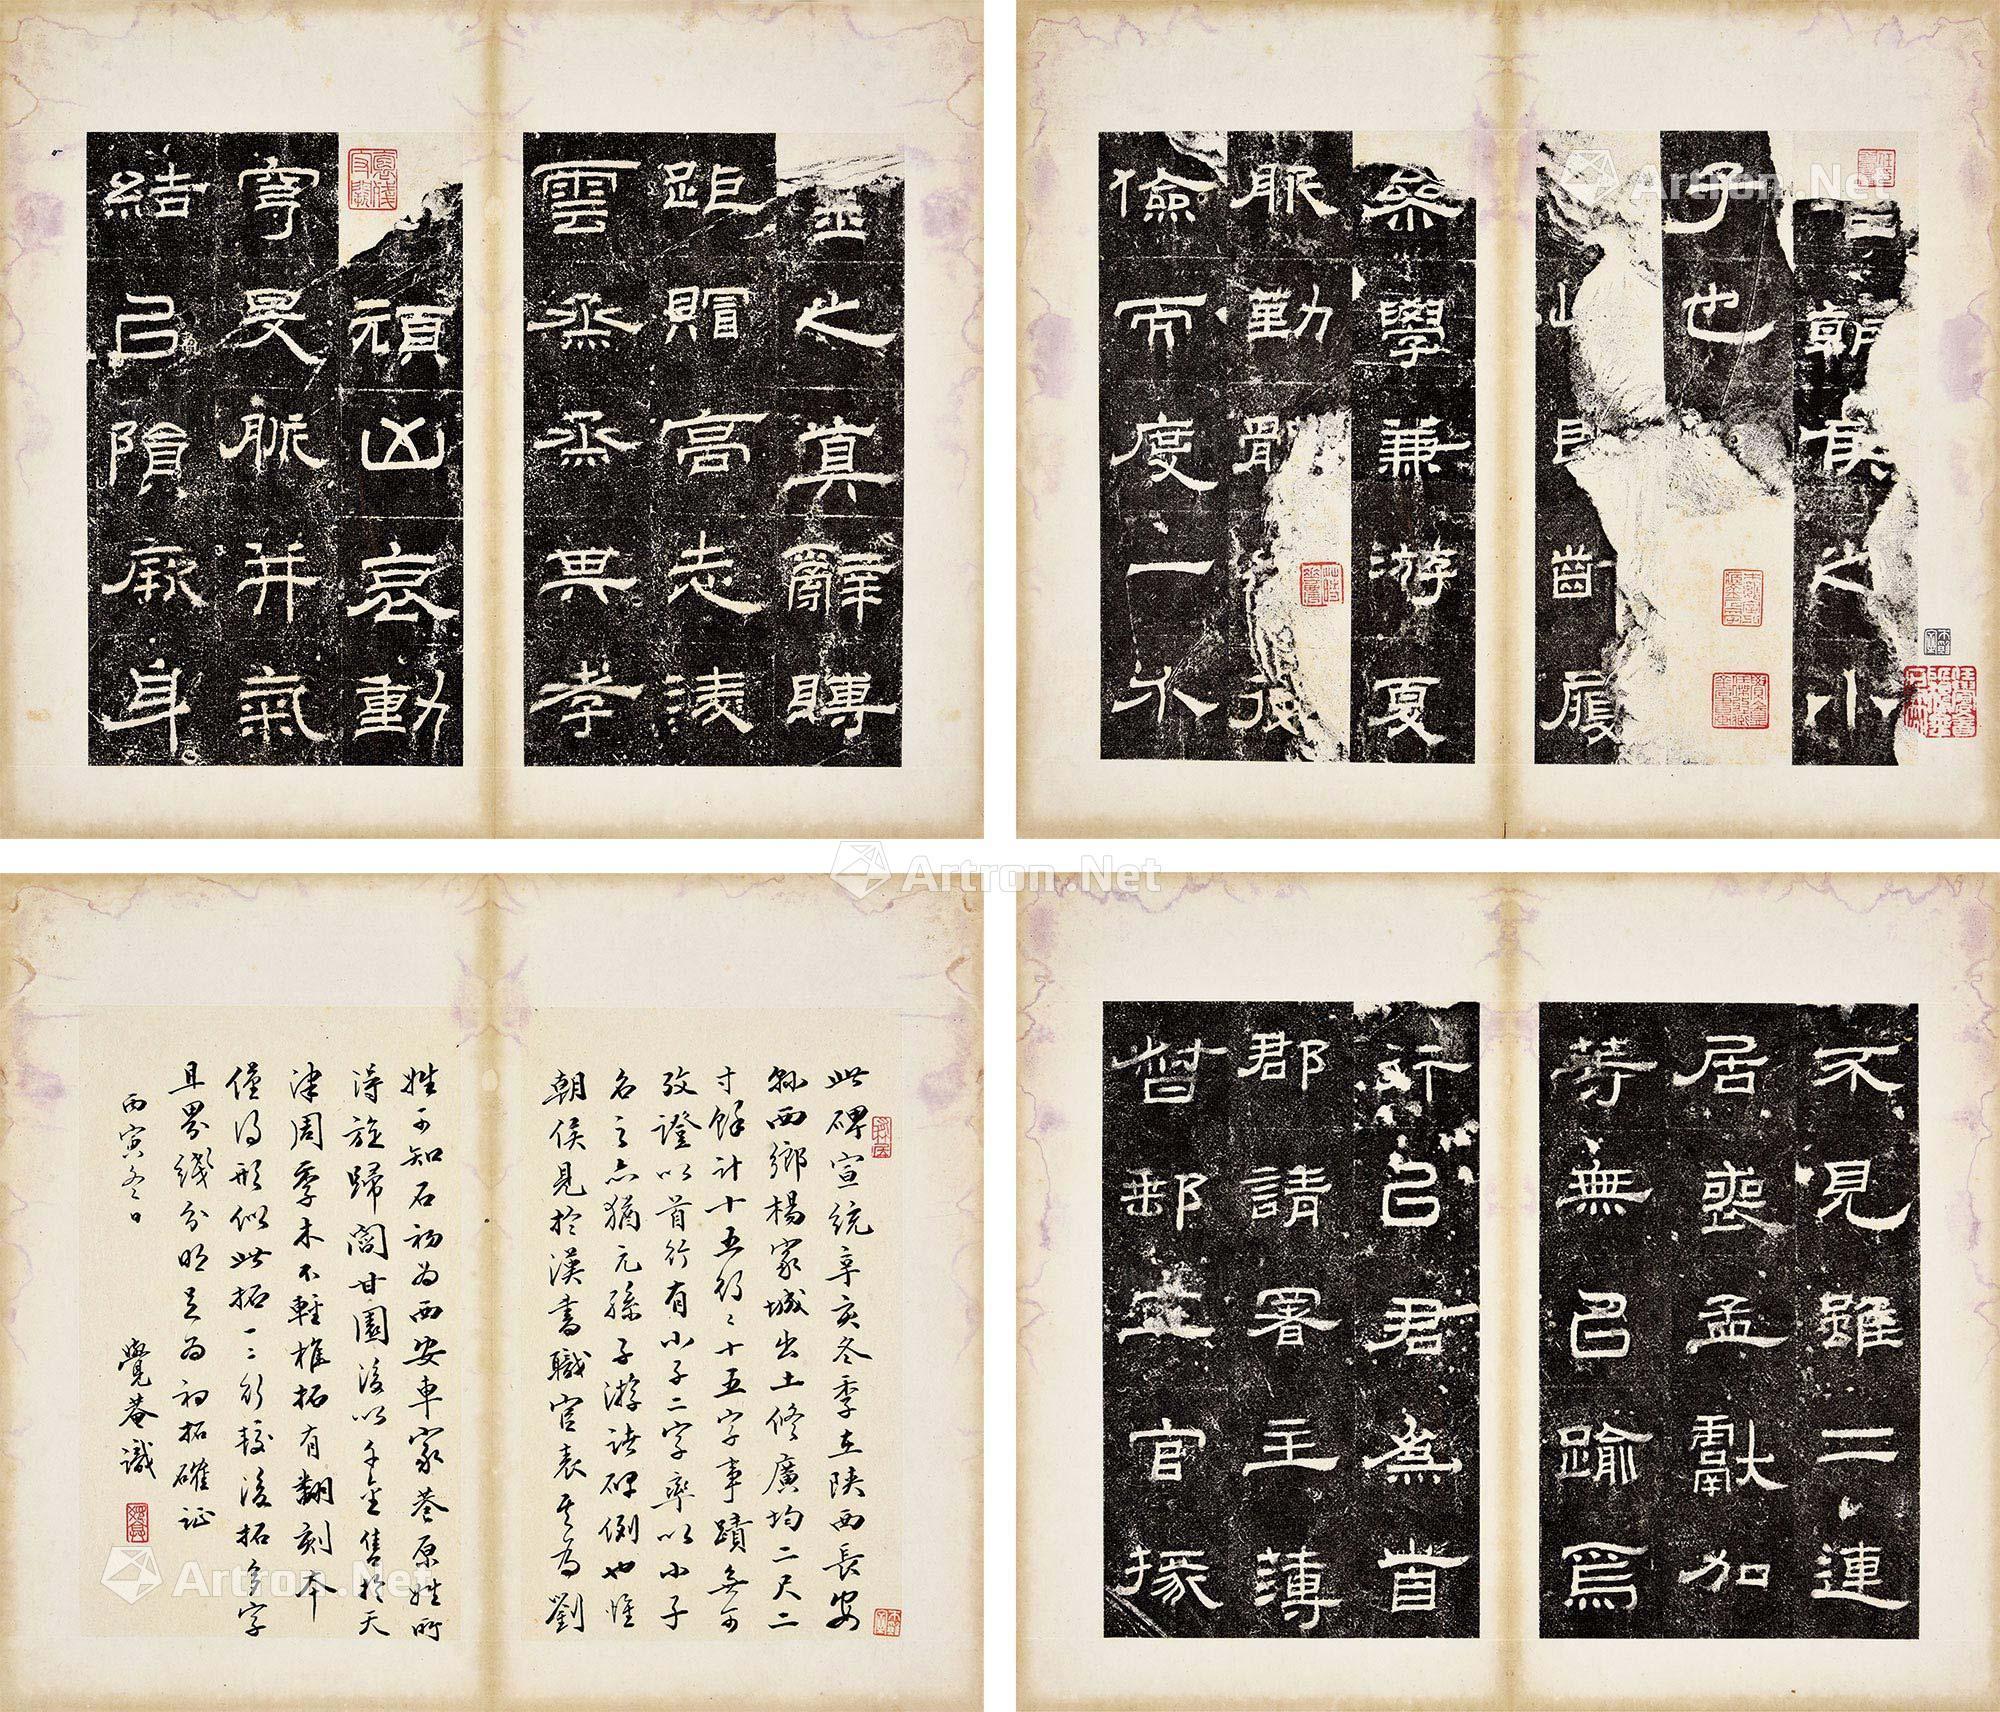 朝侯之小
子也
齒履
學兼游夏
服勤體後
儉而度一不
金之真辭聘
距贈高志淩
雲烝烝其孝
禎凶哀動
穹旻脈并氣
結㠯隕厥身
不見雖二連
居喪孟獻加
等無㠯踰焉
行㠯君為首
郡請署主薄
督郵五官掾
此碑宣統辛亥冬季在陝西長安
縣西鄉楊家城出土修廣均二尺二
寸餘計十五行〻十五字事蹟無可
攷證以首行有小子二字率以小子
名之亦猶元孫子游諸碑例也惟
朝侯見於漢書職官表其為劉
姓可知石初為西安車家巷原姓所
得旋歸閻甘園後以千金售於天
津周季木不輕椎拓有翻刻本
僅得形似此拓一二行較後拓多字
且界綫分明足為初拓確証
丙寅冬日
覺菴識
Artron.Net
Artron.Net
Artron.Net
Artron.Net
Artron.Net